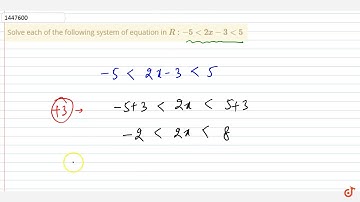 1447600
Solve each of the following system of equation in R : −5 < 2x − 3 < 5
-5 < 2x-3 < 5
+3 → -5+3 < 2x < 5+3
-2 < 2x < 8